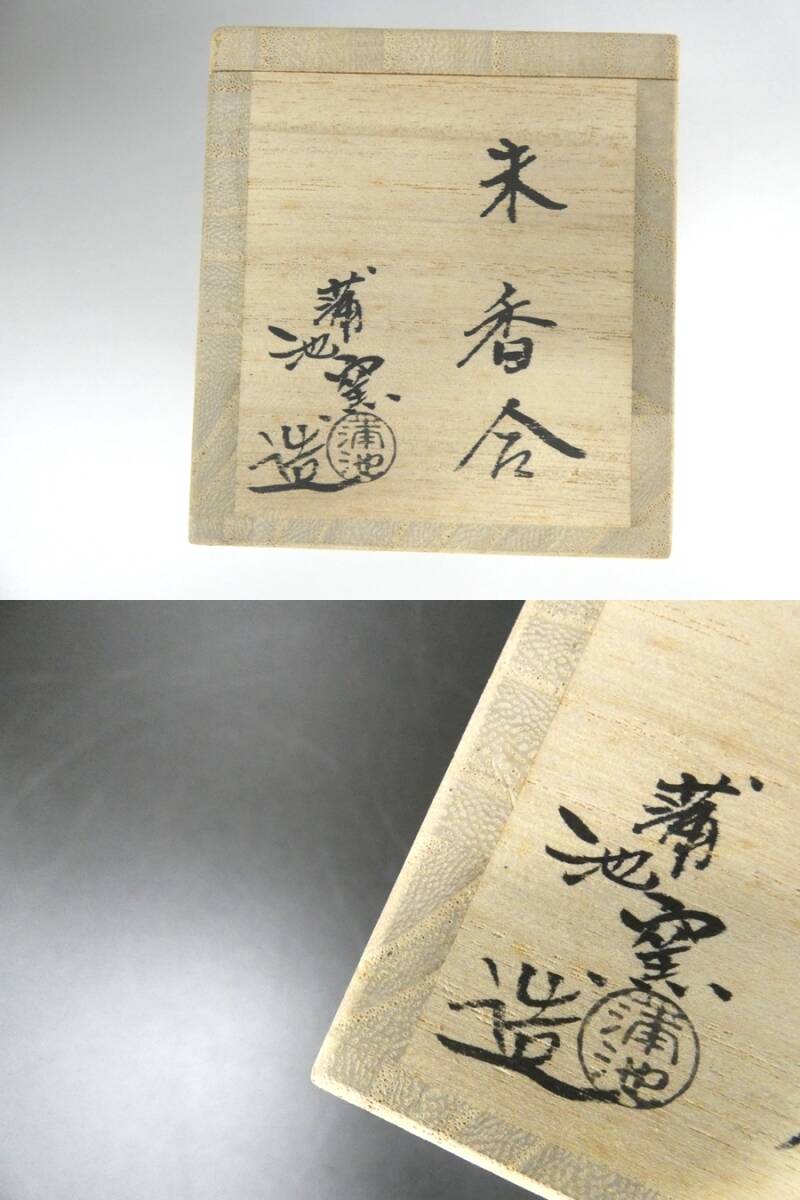 未香合
蒲池窯
造
蒲池
蒲池窯
造
蒲池